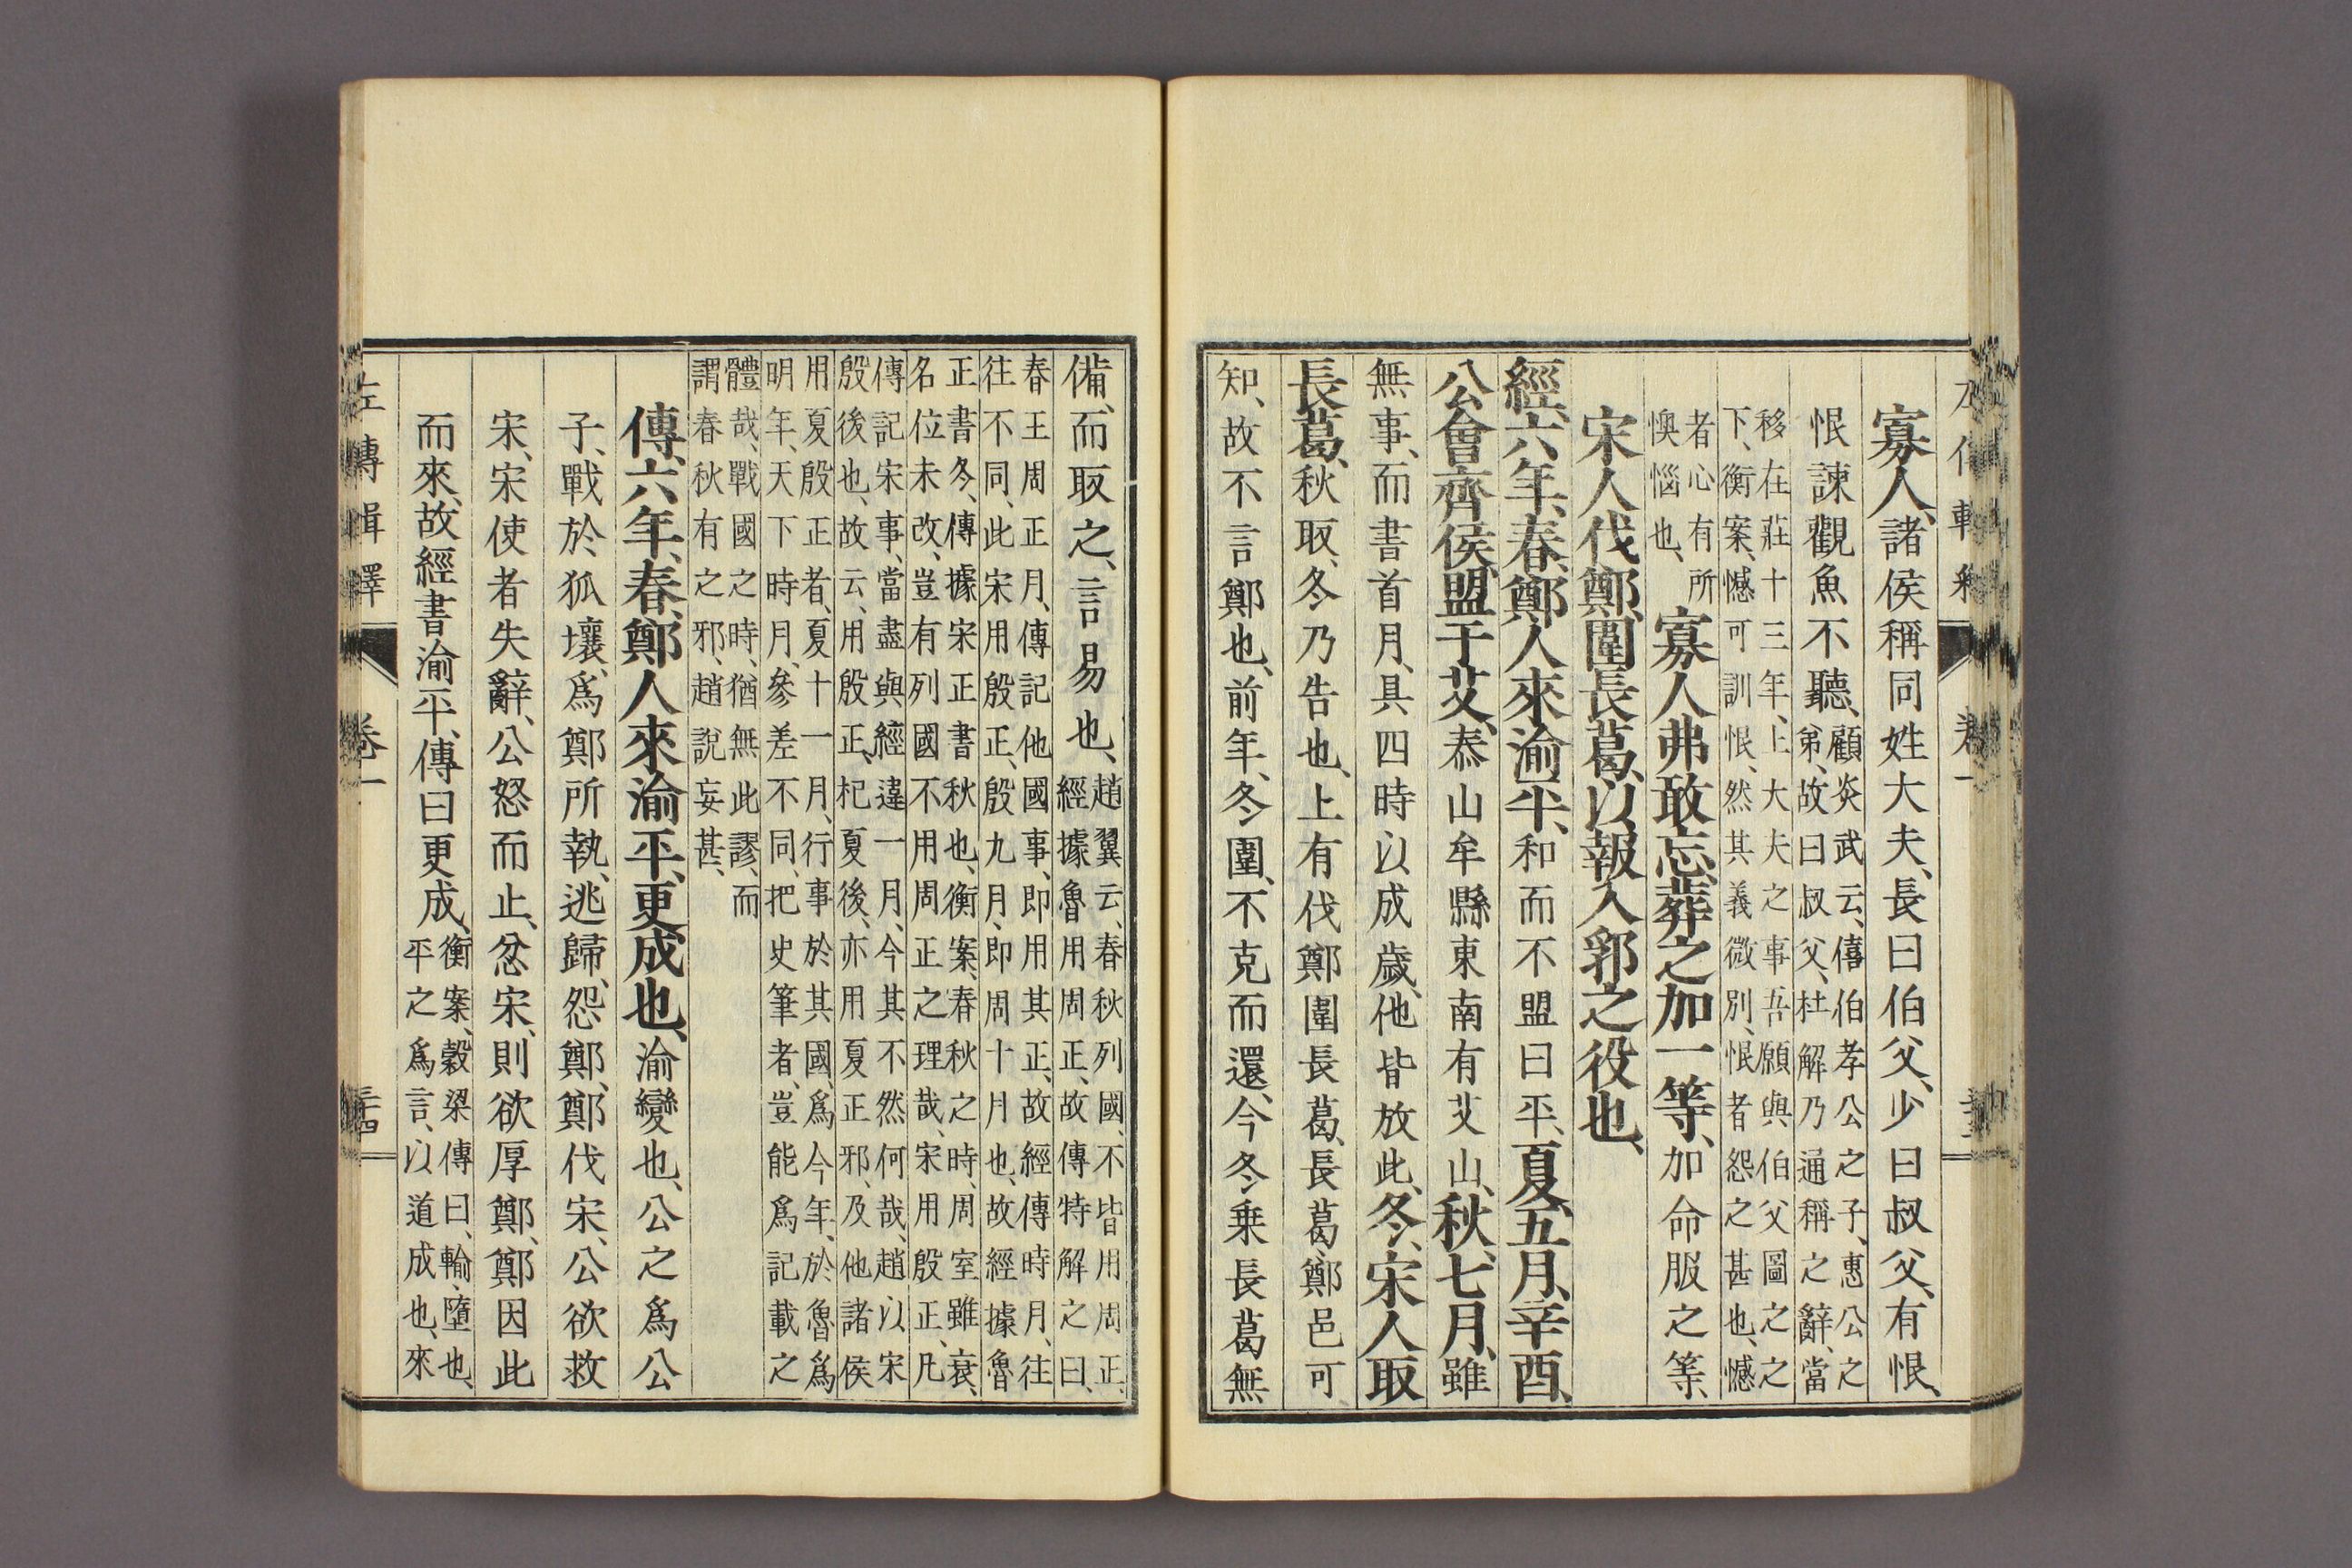 寡人、諸侯稱同姓大夫、長曰伯父、少曰叔父、有恨、
恨諫觀魚不聽、
顧炎武云、僖伯孝公之子、惠公之
弟、故曰叔父、杜解乃通稱之辭、當
移在莊十三年、上大夫之事吾願與伯父圖之之
下、衡案、憾可訓恨、然其義微別、恨者怨之甚也、憾
者心有所
懊惱也、
寡人弗敢忘、葬之加一等、加命服之等、
宋人伐鄭、圍長葛、以報入郛之役也、
經、六年、春、鄭人來渝平、和而不盟曰平、夏、五月、辛酉、
公會齊侯、盟于艾、泰山牟縣東南有艾山、秋、七月、雖
無事、而書首月、具四時以成歲、他皆放此、冬、宋人取
長葛、秋取、冬乃告也、上有伐鄭圍長葛、長葛、鄭邑可
知、故不言鄭也、前年、冬、圍、不克而還、今冬乘長葛無
備、而取之、言易也、
趙翼云、春秋列國、不皆用周正、
經據魯用周正、故傳特解之曰、
春王周正月、傳記他國事、即用其正、故經傳時月、往
往不同、此宋用殷正、殷九月、即周十月也、故經據魯
正書冬、傳據宋正書秋也、衡案、春秋之時、周室雖衰、
名位未改、豈有列國不用周正之理哉、宋用殷正、凡
傳記宋事、當盡與經違一月、今其不然何哉、趙以宋
殷後也、故云、用殷正、杞夏後、亦用夏正邪、及他諸侯
用夏殷正者、夏十一月、行事於其國、爲今年、於魯爲
明年、天下時月、參差不同、把史筆者、豈能爲記載之
體哉、戰國之時、猶無此謬、而
謂春秋有之邪、趙說妄甚、
傳、六年、春、鄭人來渝平、更成也、渝變也、公之爲公
子、戰於狐壤、爲鄭所執、逃歸、怨鄭、鄭伐宋、公欲救
宋、宋使者失辭、公怒而止、忿宋、則欲厚鄭、鄭因此
而來、故經書渝平、傳曰更成、
衡案、穀梁傳曰、輸、墮也、
平之爲言、以道成也、來
左傳輯釋
卷一
二十四